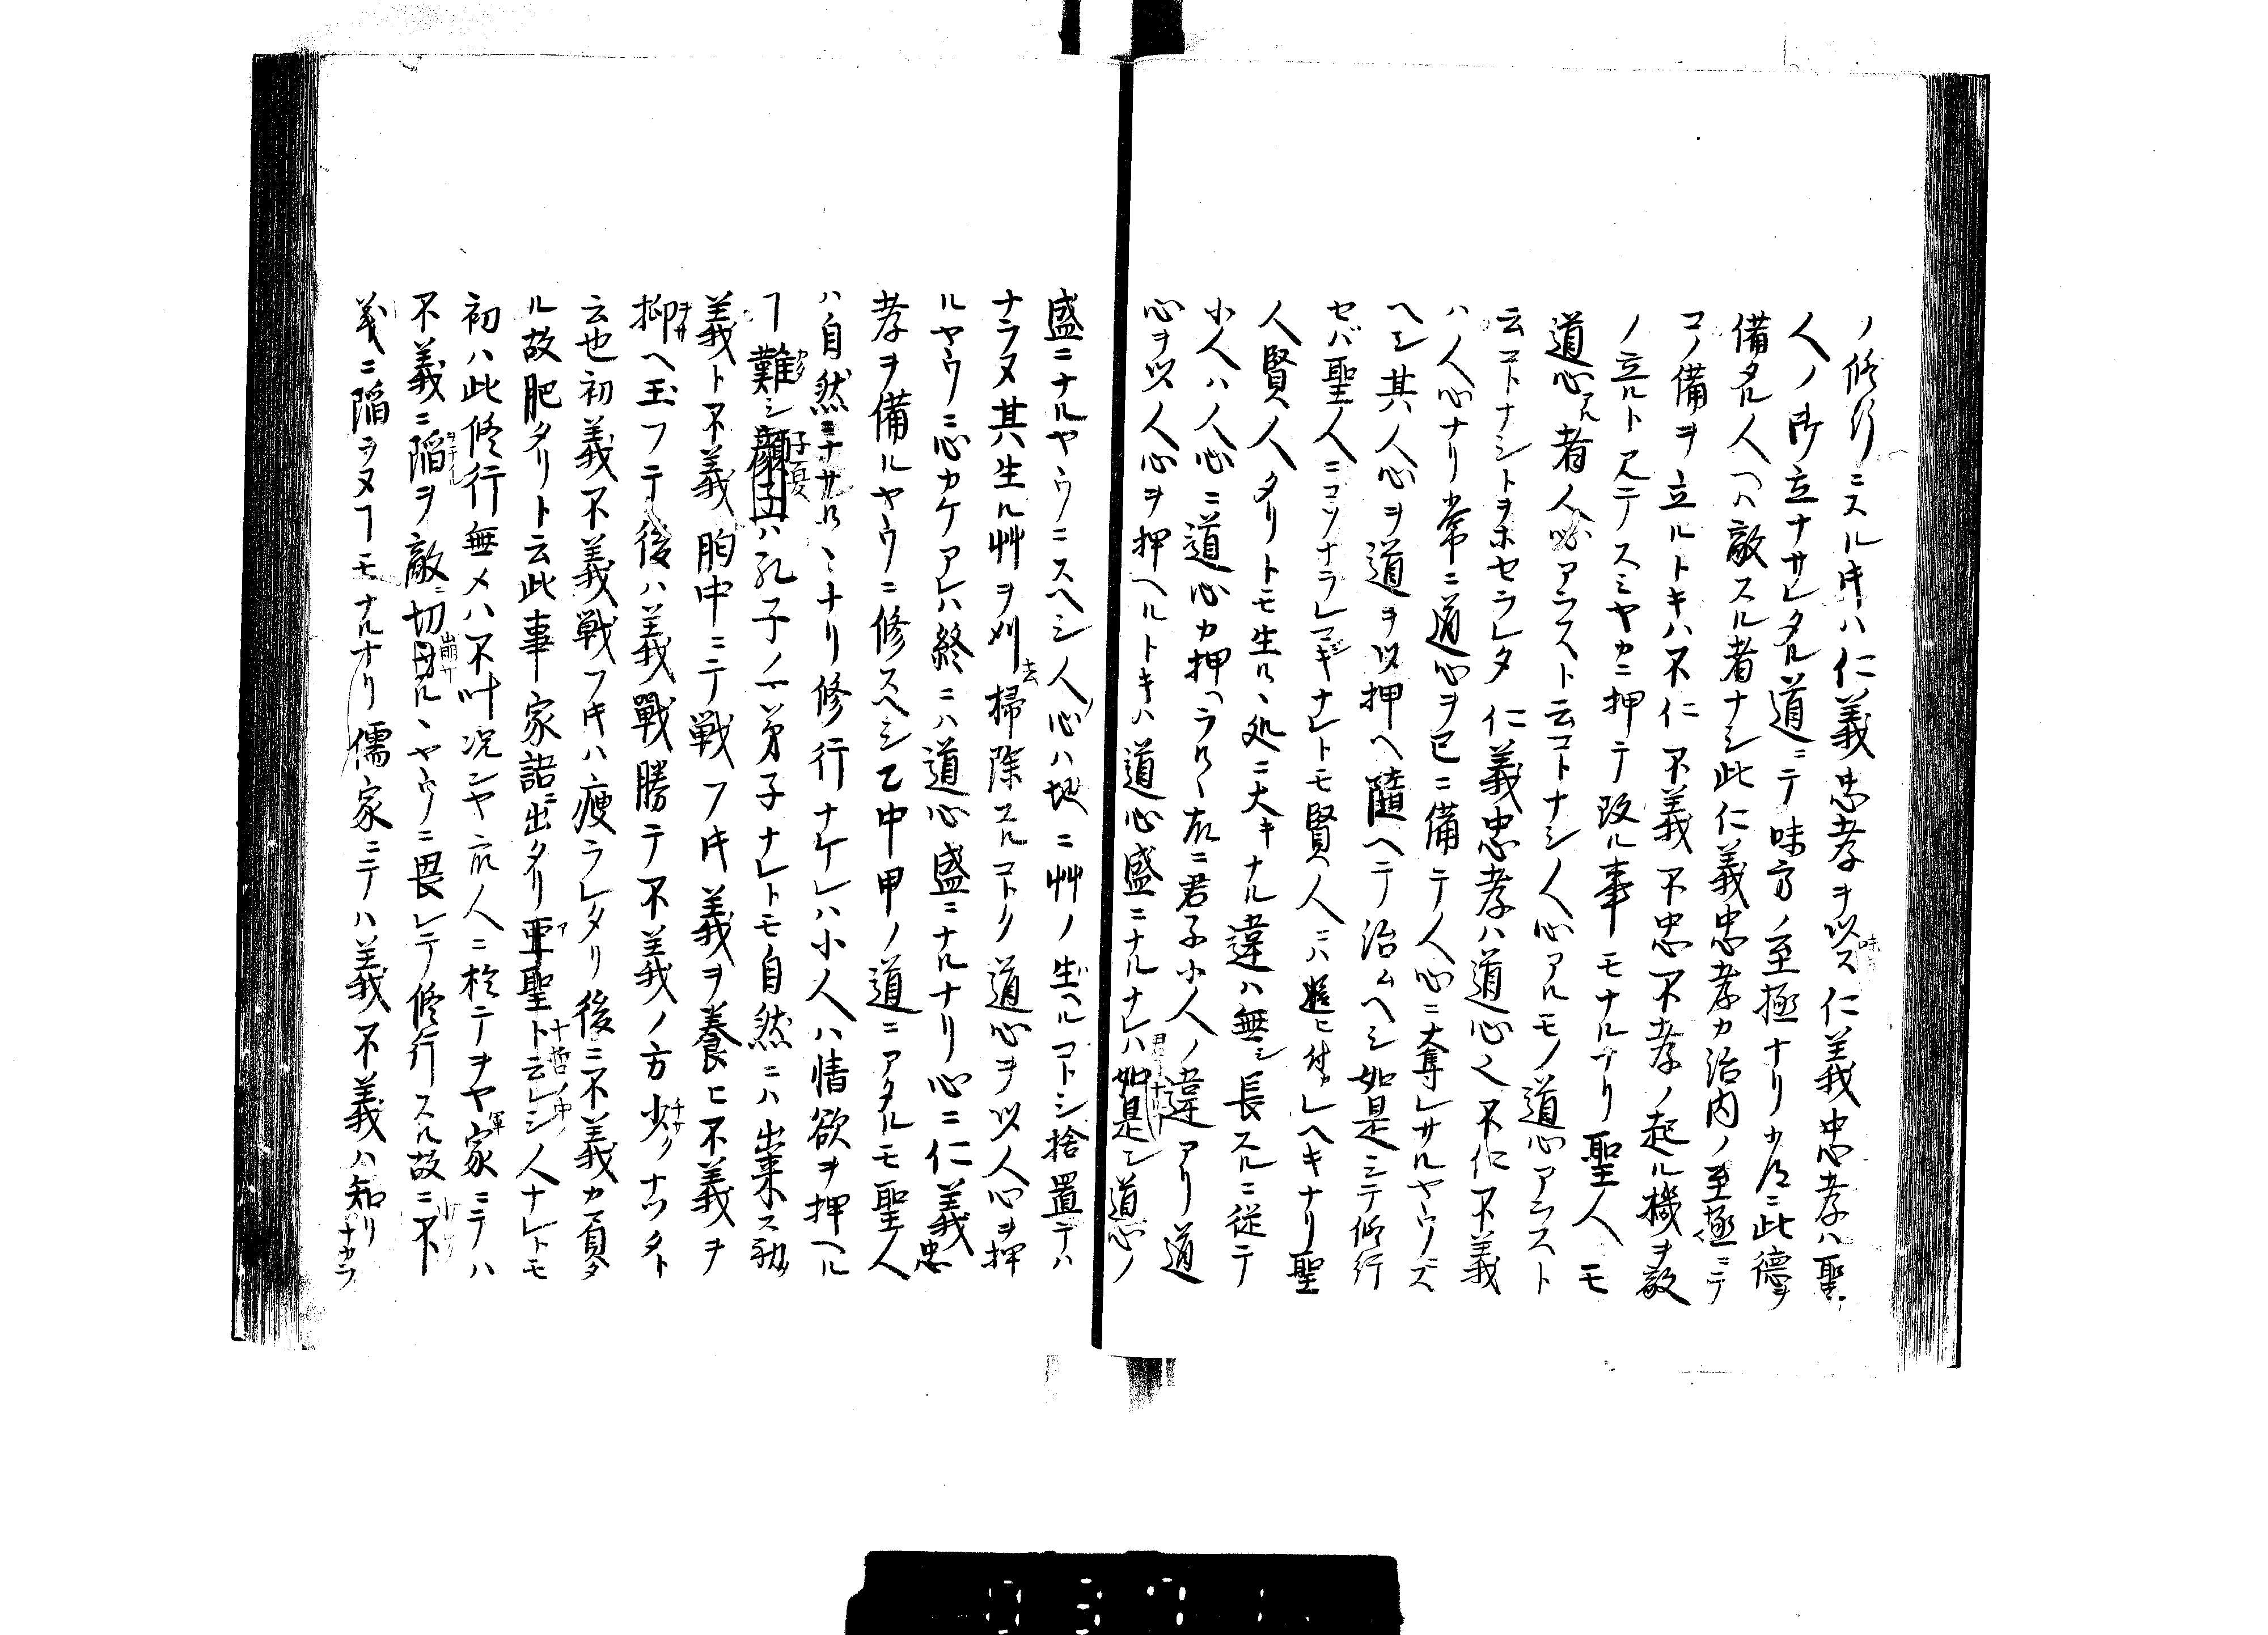 ノ修行ニスル時ハ仁義忠孝ヲ以ス仁義忠孝ハ聖
人ノ御立ナサレタル道ニテ味方ノ至極ナリ此徳ヲ
備タル人ヘハ敵スル者ナシ此仁義忠孝カ治内ノ至極ニテ
コノ備ヲ立ルトキハ不仁不義不忠不孝ノ起ル機ヲ敵
ノ立ルト見テスミヤカニ押テ改ル事モナルナリ聖人モ
道心アル者人心アラスト云コトナシ人心アルモノ道心アラスト
云コトナシトヲホセラレタ仁義忠孝ハ道心也不仁不義
ハ人心ナリ常ニ道心ヲ己ニ備テ人心ニ奪レサルヤウニス
ヘシ其人心ヲ道ヲ以押ヘ随ヘテ治ムヘシ如是シテ修行
セバ聖人ニコソナラレマジキナレトモ賢人ニハ追ヒ付レヘキナリ聖
人賢人タリトモ生ルヽ処ニ大キナル違ハ無シ長スルニ従テ
小人ハ人心ニ道心カ押ヘラルヽ故ニ君子小人ノ違アリ道
心ヲ以人心ヲ押ヘルトキハ道心盛ニナルナレハ如是シ道心ノ
盛ニナルヤウニスヘシ人心ハ地ニ艸ノ生ヘルコトシ捨置テハ
ナラヌ其生ル艸ヲ刈去掃除スルコトク道心ヲ以人心ヲ押
ルヤウニ心カケアレハ終ニハ道心盛ニナルナリ心ニ仁義忠
孝ヲ備ルヤウニ修スヘシ乙中甲ノ道ニアタルモ聖人
ハ自然ニナサルヽナリ修行ナケレハ小人ハ情欲ヲ押ヘル
ヿ難シ子夏ハ孔子ノ弟子ナレトモ自然ニハ出来ス
義ト不義胸中ニテ戦フ時義ヲ養ヒ不義ヲ
抑ヘ玉フテ後ハ義戦戦勝テ不義ノ方少クナツタト
云也初義不義戦フ時ハ痩ラレタリ後ニ不義カ負タ
ル故肥タリト云此事家語ニ出タリ亜聖ト云レシ人ナレトモ
初ハ此修行無メハ不叶况シヤ凡人ニ於テヲヤ軍家ニテハ
不義ニ陥ヲ敵ニ切崩サルヽヤウニ畏レテ修行スル故ニ不
義ニ陥ヲヌヿモナルナリ儒家ニテハ義不義ハ知リナカラ